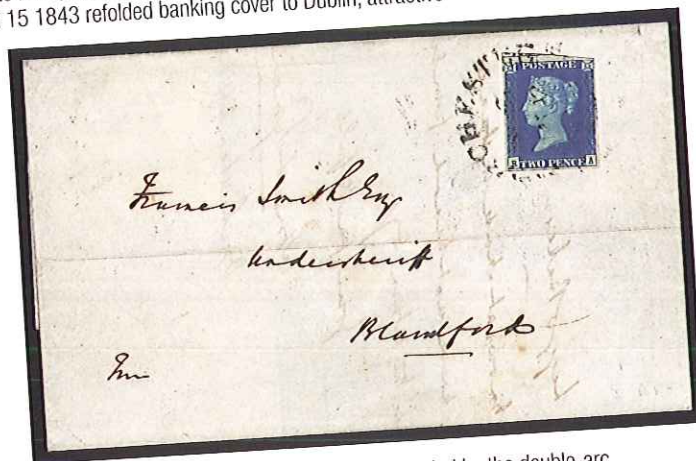 15 1843 refolded banking cover to Dublin, attractive
POSTAGE
TWO PENCE
A
Francis Smith Esq
Undersheriff
Blandford
by the double-arc